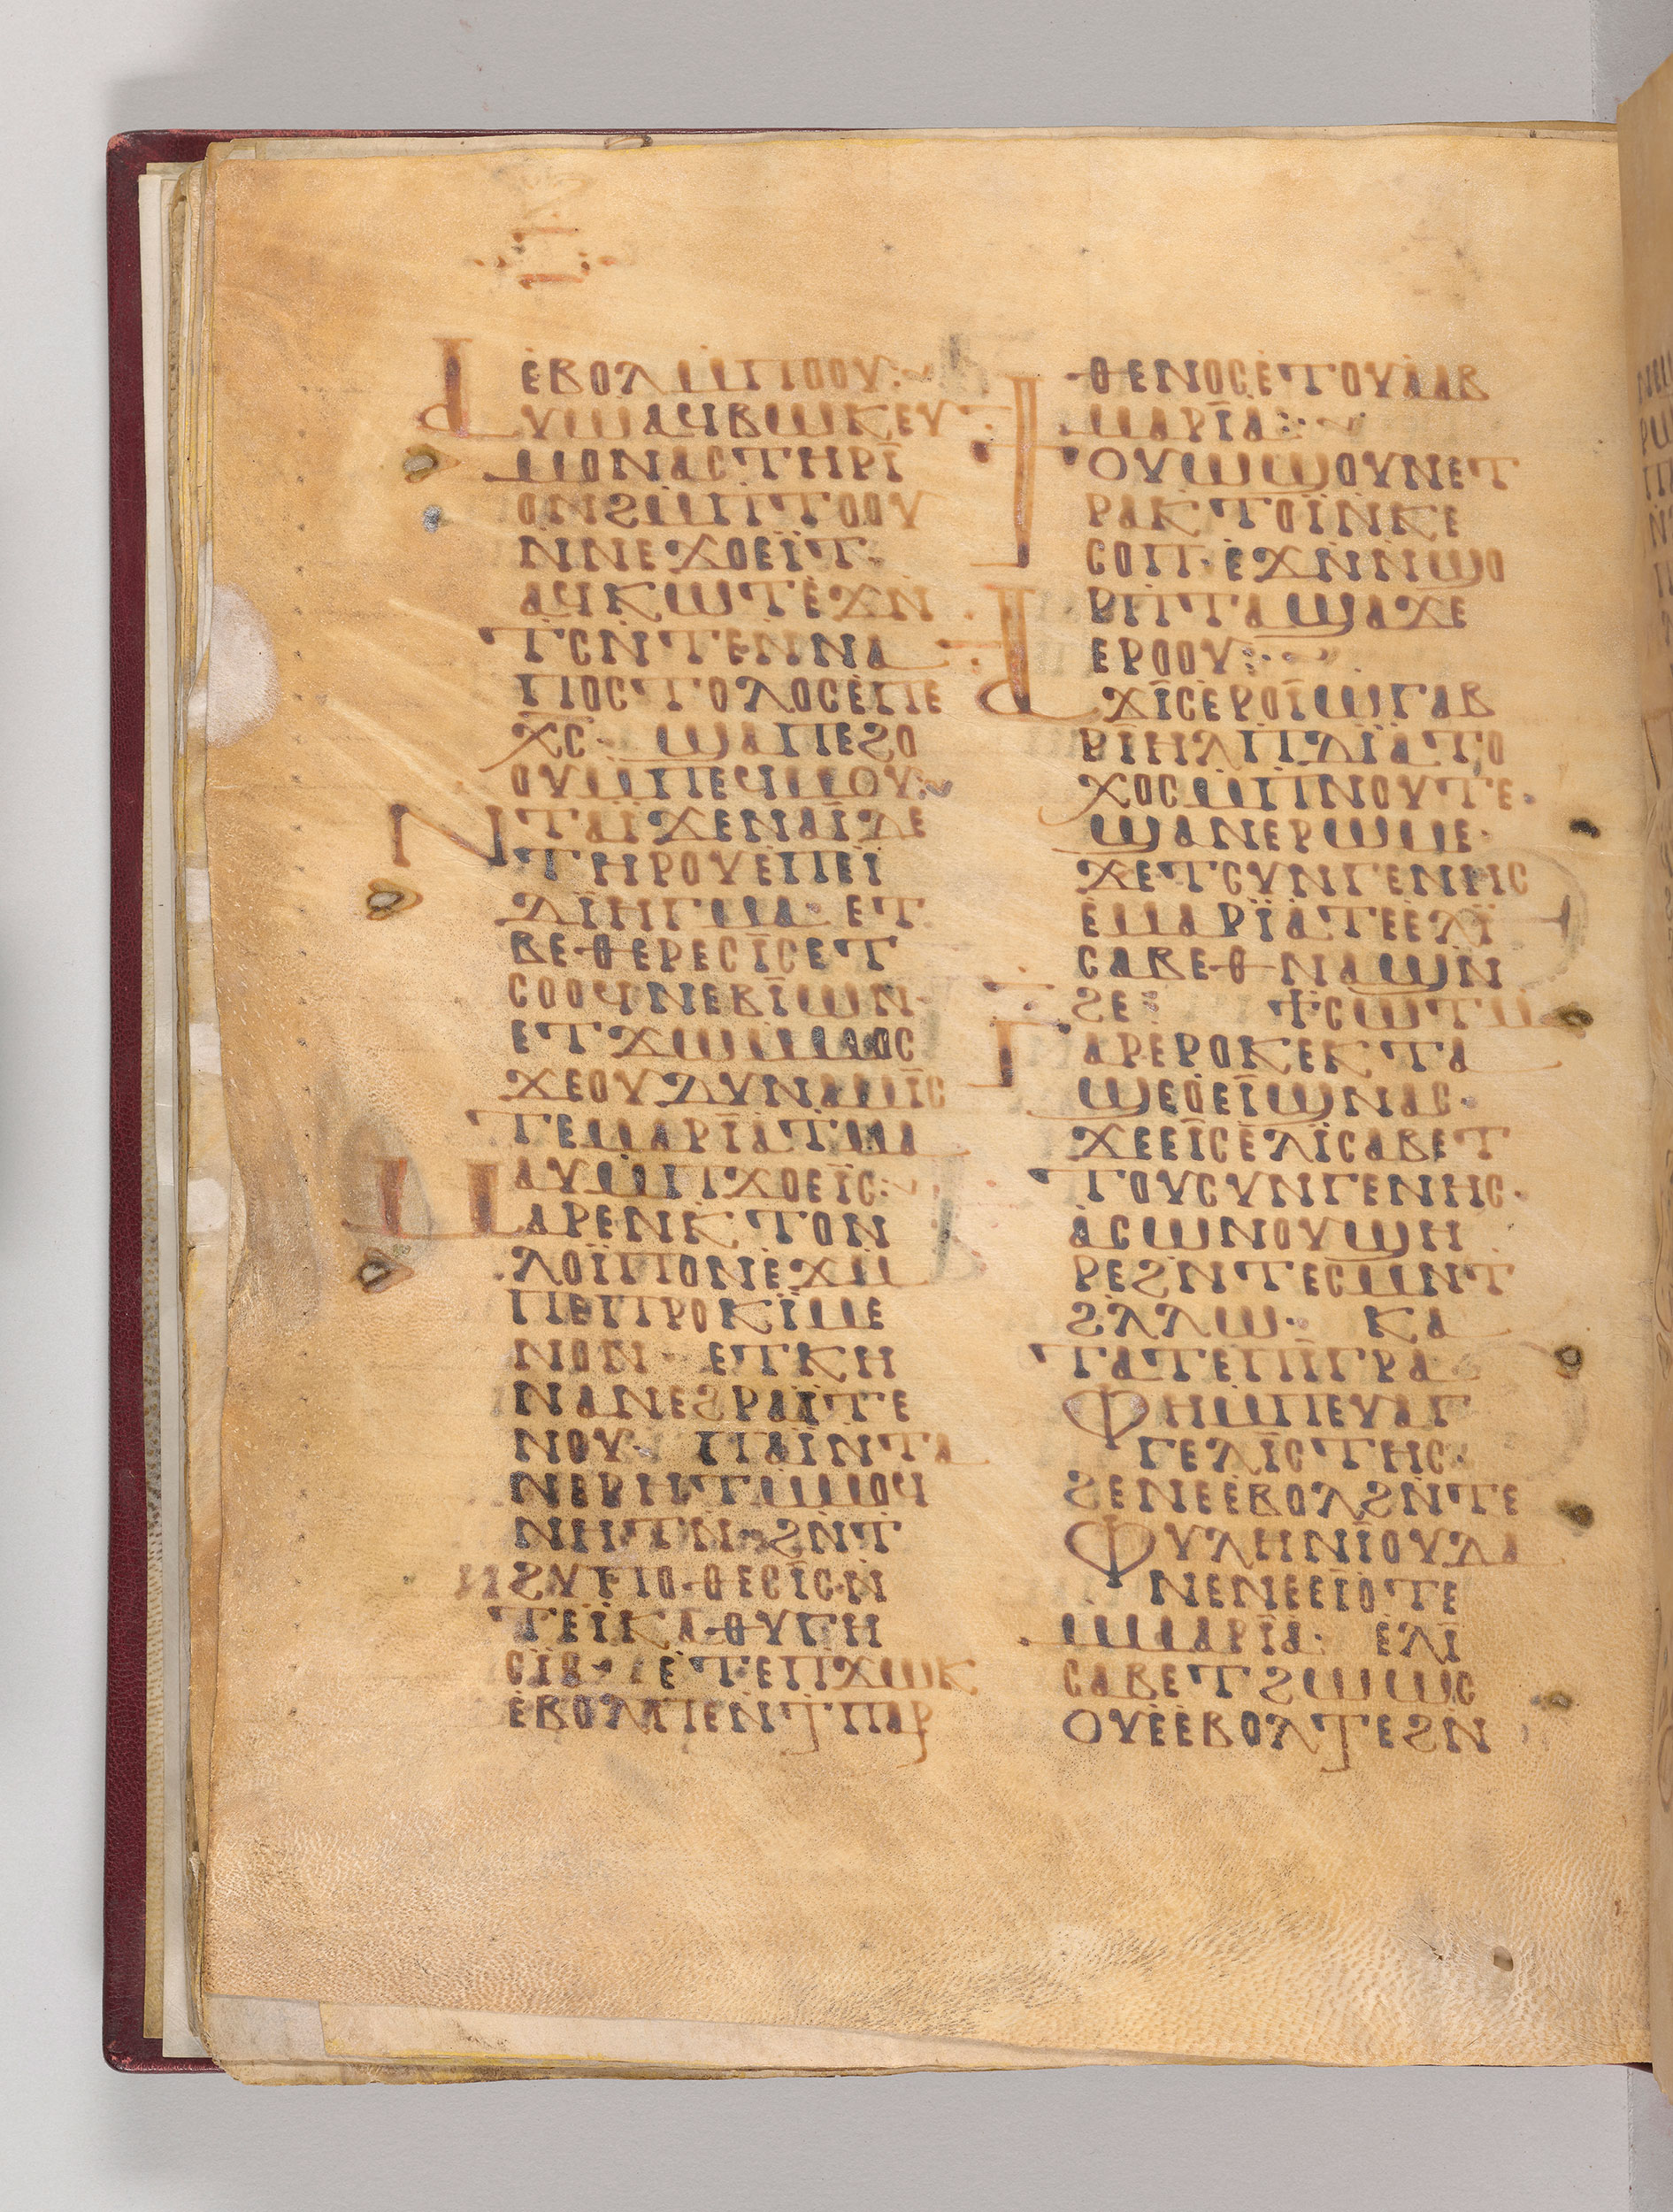 ⲉⲃⲟⲗⲙ̄ⲡⲟⲟⲩ:
ⲁⲩⲱⲁϥⲃⲱⲕⲉⲩ
ⲙⲟⲛⲁⲥⲧⲏⲣⲓ
ⲟⲛϩⲙ̄ⲡⲧⲟⲟⲩ
ⲛ̄ⲛⲉϫⲟⲉⲓ̈ⲧ·
ⲁϥⲕⲱⲧⲉ̀ϫⲛ̄
ⲧ̄ⲥⲛ̄ⲧⲉⲛ̄ⲛⲁ
ⲡⲟⲥⲧⲟⲗⲟⲥⲉ̀ⲡⲉ
ⲭ̄ⲥ̄· ϣⲁⲡⲉϩⲟ
ⲟⲩⲙ̄ⲡⲉϥⲙⲟⲩ:
ⲛⲧⲁⲓ̈ϫⲉⲛⲁⲓ̈ⲇⲉ
ⲧⲏⲣⲟⲩⲉ̀ⲡⲉⲓ̈
ⲇⲓ̈ⲏⲅⲙⲁ· ⲉⲧ
ⲃⲉⲑⲉⲣⲉⲥⲓ̈ⲥⲉⲧ
ⲥⲟⲟϥⲛⲉⲃⲓ̈ⲱⲛ·
ⲉⲧϫⲱⲙ̄ⲙⲟⲥ
ϫⲉⲟⲩⲇⲩⲛⲁⲙⲓ̈ⲥ
ⲧⲉⲙⲁⲣⲓ̈ⲁⲧⲙⲁ
ⲁⲩⲙ̄ⲡϫⲟⲉⲓ̈ⲥ:
ⲙⲁⲣⲉⲛⲕⲧⲟⲛ
ⲗⲟⲓ̈ⲡⲟⲛⲉ̀ϫⲙ̄
ⲡⲉⲡⲣⲟⲕⲓ̈ⲙⲉ
ⲛⲟⲛ· ⲉⲧⲕⲏ
ⲛⲁⲛⲉϩⲣⲁⲓ̈ⲧⲉ
ⲛⲟⲩ· ⲡⲁⲓ̈ⲛⲧⲁ
ⲛⲉⲣⲏⲧⲙ̄ⲙⲟϥ
ⲛⲏⲧⲛ̄ϩⲛ̄ⲧ
ϩⲩⲡⲟⲑⲉⲥⲓ̈ⲥⲛ̄
ⲧⲉⲓ̈ⲕⲁⲑⲩⲅⲏ
ⲥⲓ̈ⲥ· ⲉ̀ⲧⲉⲡϫⲱⲕ
ⲉ̀ⲃⲟⲗⲡⲉⲛ̄ⲧ̄ⲡⲁⲣ
ⲑⲉⲛⲟⲥⲉ̀ⲧⲟⲩⲁ̀ⲁⲃ
ⲙⲁⲣⲓ̈ⲁ:
ϯⲟⲩⲱϣⲟⲩⲛⲉⲧ
ⲣⲁⲕⲧⲟⲓ̈ⲛ̄ⲕⲉ
ⲥⲟⲡ· ⲉ̀ϫⲛ̄ⲛ̄ϣⲟ
ⲣⲡ̄ⲧⲁϣⲁϫⲉ
ⲉⲣⲟⲟⲩ:
ⲁϫⲓ̈ⲥⲉ̀ⲣⲟⲓ̈ⲱ̀ⲅⲁⲃ
ⲣⲓ̈ⲏⲗⲡⲇⲓ̈ⲁⲧⲟ
ⲭⲟⲥⲙ̄ⲡⲛⲟⲩⲧⲉ·
ϣⲁⲛⲉⲣⲱⲙⲉ·
ϫⲉⲧⲥⲩⲛⲅⲉⲛⲏⲥ
ⲉ̀ⲙⲁⲣⲓ̈ⲁⲧⲉⲉ̀ⲗⲓ̈
ⲥⲁⲃⲉⲑⲛⲁϣⲛ̄
ϩⲉ: ϯⲥⲱⲧⲙ̄
ⲅⲁⲣⲉⲣⲟⲕⲉⲕⲧⲁ
ϣⲉⲟⲉⲓ̈ϣⲛⲁⲥ·
ϫⲉⲉⲓ̈ⲥⲉ̀ⲗⲓ̈ⲥⲁⲃⲉⲧ
ⲧⲟⲩⲥⲩⲛⲅⲉⲛⲏⲥ·
ⲁ̀ⲥⲱⲛⲟⲩϣⲏ
ⲣⲉϩⲛ̄ⲧⲉⲥⲙⲛ̄ⲧ
ϩⲗ̄ⲗⲱ· ⲕⲁ
ⲧⲁⲧⲉⲡⲓ̈ⲅⲣⲁ
ⲫⲏⲙ̄ⲡⲉⲩⲁⲅ
ⲅⲉⲗⲓ̈ⲥⲧⲏⲥ·
ϩⲉⲛⲉⲉ̀ⲃⲟⲗϩⲛ̄ⲧⲉ
ⲫⲩⲗⲏⲛ̄ⲓ̈ⲟⲩⲇⲁ
ⲛⲉⲛⲉⲉⲓ̈ⲟⲧⲉ
ⲙ̄ⲙⲁⲣⲓ̈ⲁ· ⲉ̀ⲗⲓ̈
ⲥⲁⲃⲉⲧϩⲱⲱⲥ
ⲟⲩⲉ̀ⲉ̀ⲃⲟⲗⲧⲉϩⲛ̄